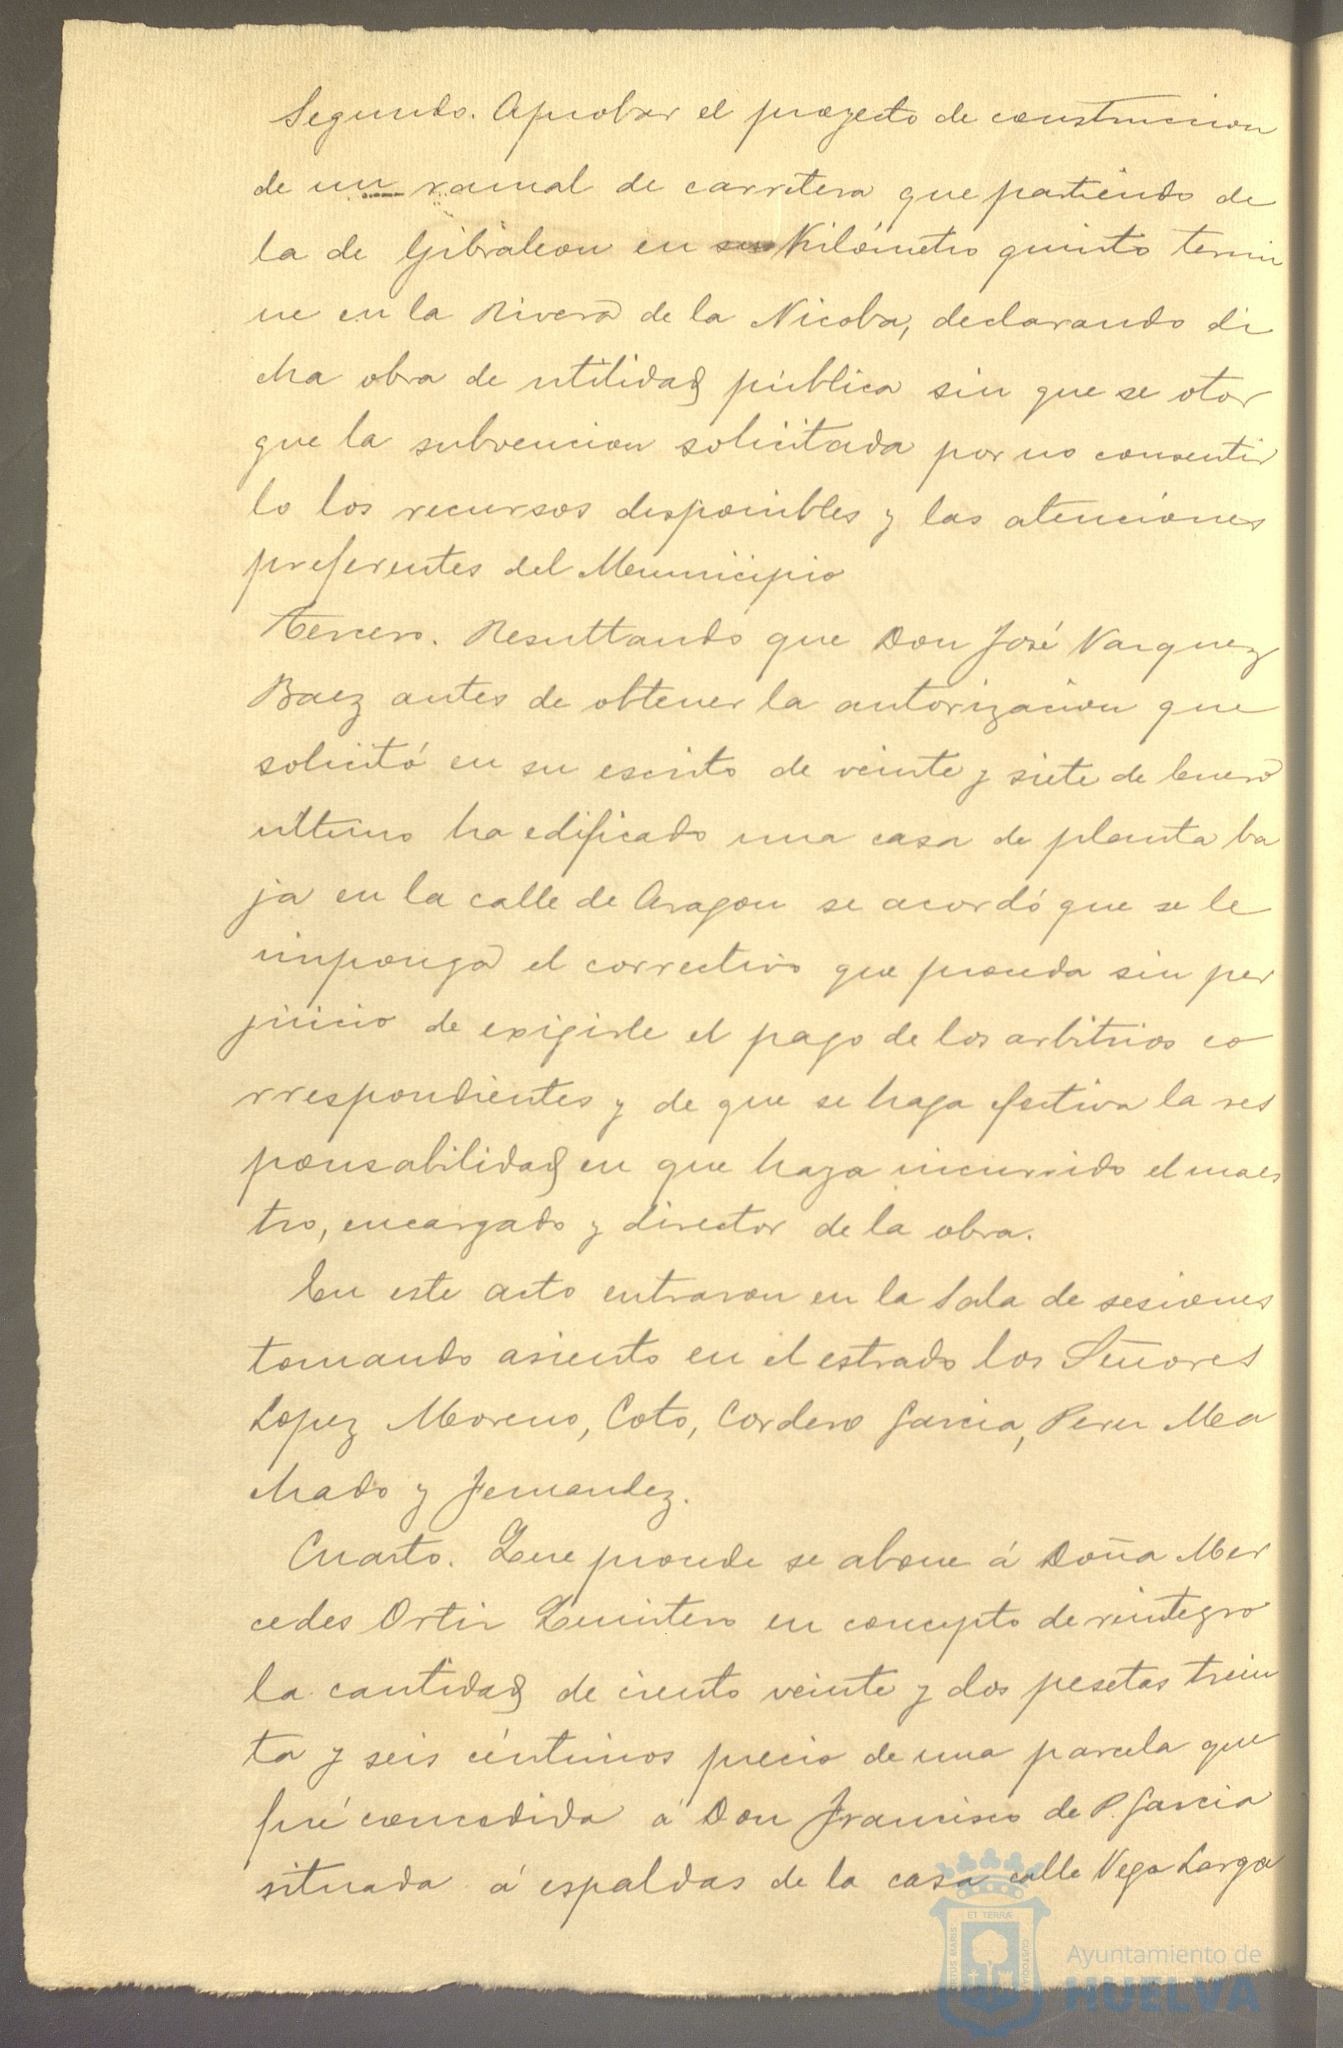 Segundo. Aprobar el proyecto de construccion
de un ramal de carretera que partiendo de
la de Gibraleon en su Kilómetro quinto termi
ne en la Rivera de la Nicoba, declarando di
cha obra de utilidad pública sin que se otor
gue la subvencion solicitada por no consentir
lo los recursos disponibles y las atenciones
preferentes del Municipio
Tercero. Resultando que Don José Vazquez
Baez antes de obtener la autorizacion que
solicitó en su escrito de veinte y siete de Enero
ultimo ha edificado una casa de planta ba
ja en la calle de Aragon se acordó que se le
imponga el correctivo que proceda sin per
juicio de exigirle el pago de los arbitrios co
rrespondientes y de que se haga efectiva la res
ponsabilidad en que haya incurrido el maes
tro, encargado y director de la obra.
En este acto entraron en la Sala de sesiones
tomando asiento en el estrado los Señores
Lopez Moreno, Coto, Cordero Garcia, Perez Ma
chado y Fernandez.
Cuarto. Que procede se abone á Doña Mer
cedes Ortiz Quintero en concepto de reintegro
la cantidad de ciento veinte y dos pesetas trein
ta y seis céntimos precio de una parcela que
fué concedida á Don Francisco de P. Garcia
situada á espaldas de la casa calle Vega Larga
ET TERRÆ
PORTUS MARIS
CUSTODIA
Ayuntamiento de
HUELVA